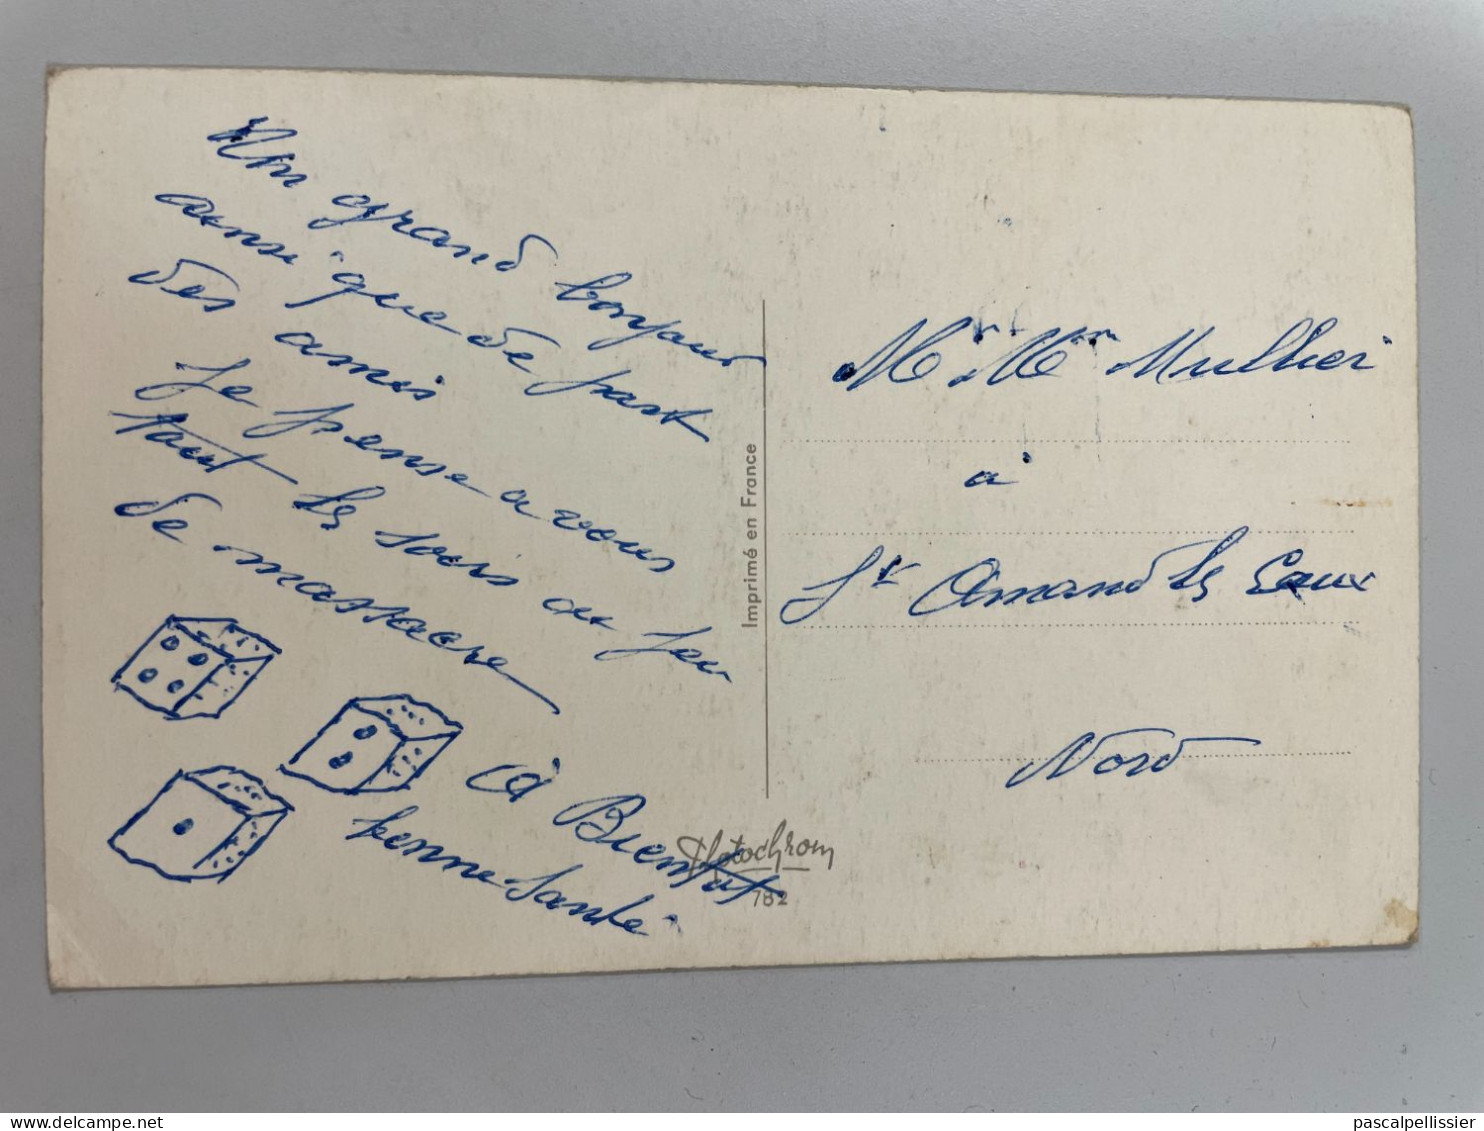 Un grand bonjour
ainsi que de part
des amis
Je pense a vous
tout les soirs au jeu
de massacre
à Bientôt
bonne Santé
Imprimé en France
Photochrom
782
Mr Mme Mullier
à
St Amand les Eaux
Nord
pascalpellissier
© delcampe.net